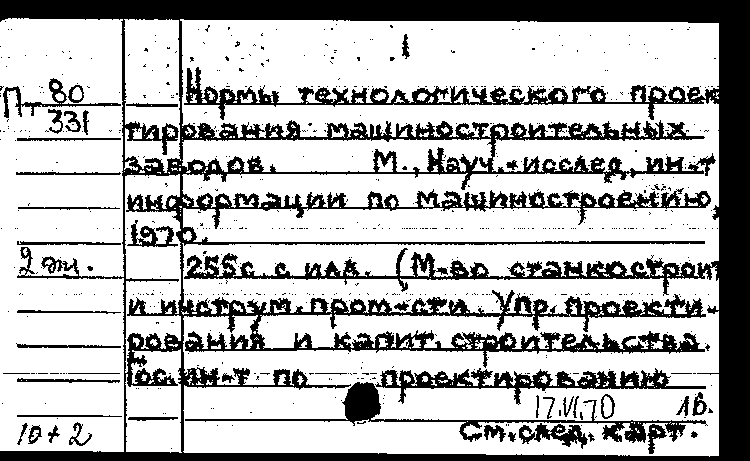 1
Пт 80
331
Нормы технологического проек
тирования машиностроительных
заводов. М., Науч.-исслед. ин-т
информации по машиностроению,
1970.
2 эк.
255с с илл. (М-во станкостроит
и инструм. пром-сти. Упр. проекти-
рования и капит. строительства.
Гос. ин-т по проектированию
17.VI.70 ЛВ.
10+2
См. след. карт.